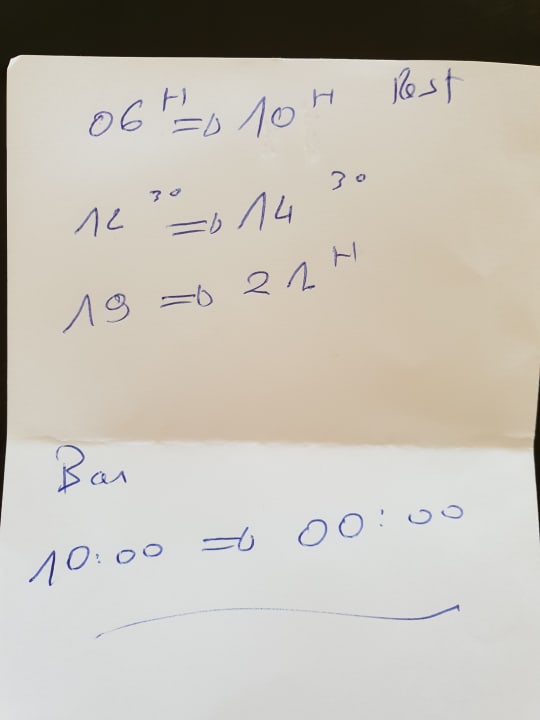 06H => 10H Rest
12 30 => 14 30
19 => 21H
Bar
10:00 => 00:00